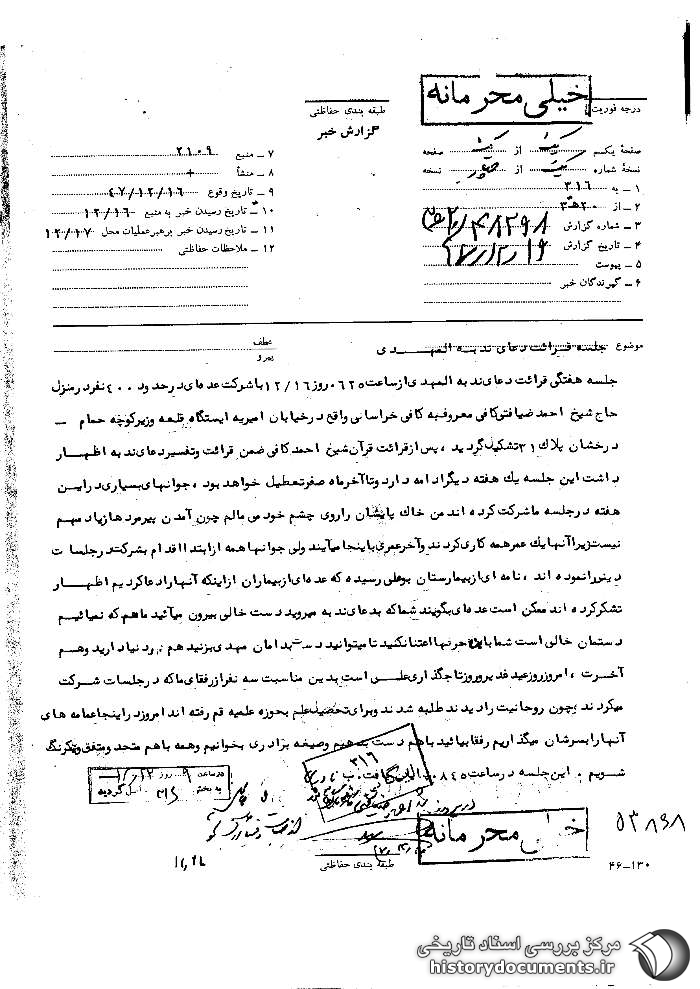 خیلی محرمانه
درجه فوریت
طبقه بندی حفاظتی
گزارش خبر
صفحهٔ یکم یک از یک صفحه
نسخهٔ شماره یک از نسخه
۱ ــ به ۳۱۶
۲ ــ از ۲۰ هـ ۳
۳ ــ شماره گزارش ۴۸۲۹۸
۴ ــ تاریخ گزارش ۴۷/۱۲/۱۶
۵ ــ پیوست
۶ ــ گیرندگان خبر
۷ ــ منبع ۲۱۰۹
۸ ــ منشأ +
۹ ــ تاریخ وقوع ۴۷/۱۲/۱۶
۱۰ ــ تاریخ رسیدن خبر به منبع ۱۲/۱۶
۱۱ ــ تاریخ رسیدن خبر برهبر عملیات محل ۱۲/۱۷
۱۲ ــ ملاحظات حفاظتی
موضوع جلسه قرائت دعای ندبه المهدی
عطف
پیرو
جلسه هفتگی قرائت دعای ندبه المهدی از ساعت ۰۶۲۵ روز ۱۲/۱۶ با شرکت عده‌ای در حدود ۴۰۰ نفر در منزل
حاج شیخ احمد ضیافتی کافی معروف به کافی خراسانی واقع در خیابان امیریه ایستگاه قلعه وزیر کوچه حمام ــ
درخشان پلاک ۳۱ تشکیل گردید ، پس از قرائت قرآن شیخ احمد کافی ضمن قرائت و تفسیر دعای ندبه اظهار
داشت این جلسه یک هفته دیگر ادامه دارد و تا آخر ماه صفر تعطیل خواهد بود ، جوانهای بسیاری در این
هفته در جلسه ما شرکت کرده اند من خاک پایشان را روی چشم خود می مالم چون آمدن پیرمردها زیاد مهم
نیست زیرا آنها یک عمر همه کاری کردند و آخر عمری باینجا میآیند ولی جوانها همه از ابتدا اقدام بشرکت در جلسات
دینی را نموده اند ، نامه ای از بیمارستان بوعلی رسیده که عده‌ای از بیماران از اینکه آنها را دعا کردیم اظهار
تشکر کرده اند ممکن است عده‌ای بگویند شما که بدعای ندبه میروید دست خالی بیرون میآئید ما هم که نمیائیم
دستمان خالی است شما باین حرفها اعتنا نکنید تا میتوانید دست بدامان مهدی بزنید هم درد نیا دارید و هم
آخرت ، امروز روز عید غدیر و روز تاجگذاری علی است بدین مناسبت سه نفر از رفقای ما که در جلسات شرکت
میکردند و چون روحانیت را دیدند طلبه شدند و برای تحصیل علم بحوزه علمیه قم رفته اند امروز در اینجا عمامه های
آنها را بسرشان میگذاریم رفقا بیائید باهم دست بدهیم و صیغه برادری بخوانیم و همه باهم متحد و متفق و یکرنگ
شویم . این جلسه در ساعت ۰۸۴۵ پایان یافت.
۳۱۶
در ساعت ۹ روز
به بخش ۳۱۶
گردیده
خیلی محرمانه
طبقه بندی حفاظتی
۵۳۸۹۸
۴۶–۱۳۰
مرکز بررسی اسناد تاریخی
historydocuments.ir